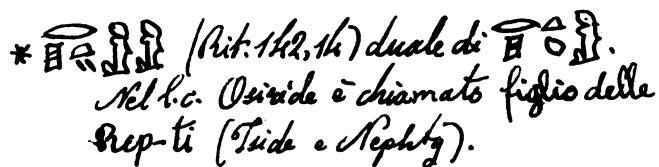 * (Rit. 142, 14) duale di .
Nel l.c. Osiride è chiamato figlio delle
Rep-ti (Iside e Nephty).